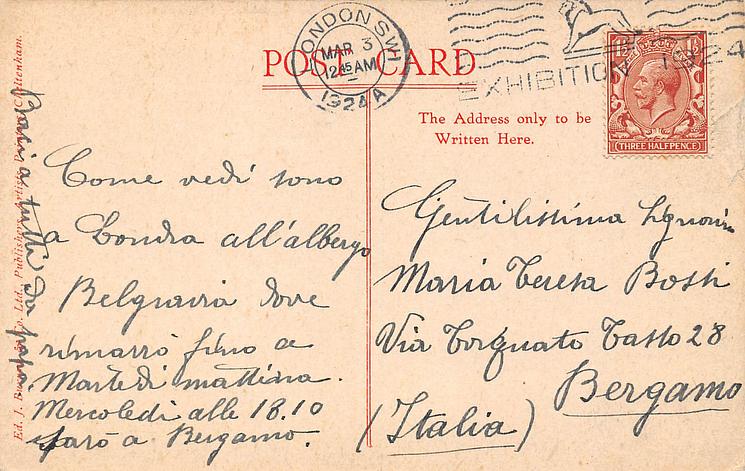 POST CARD
LONDON S.W.1
MAR 3
12 45 AM
1924 A
EXHIBITION 1924
THREE HALFPENCE
The Address only to be
Written Here.
Come vedi sono
a Londra all'albergo
Belgravia dove
rimarrò fino a
Martedì mattina.
Mercoledì alle 18.10
sarò a Bergamo.
Baci a tutti da papà
Gentilissima Signorina
Maria Teresa Bosti
Via Torquato Tasso 28
Bergamo
(Italia)
Ed. J. Ltd., Publishers, Cheltenham.